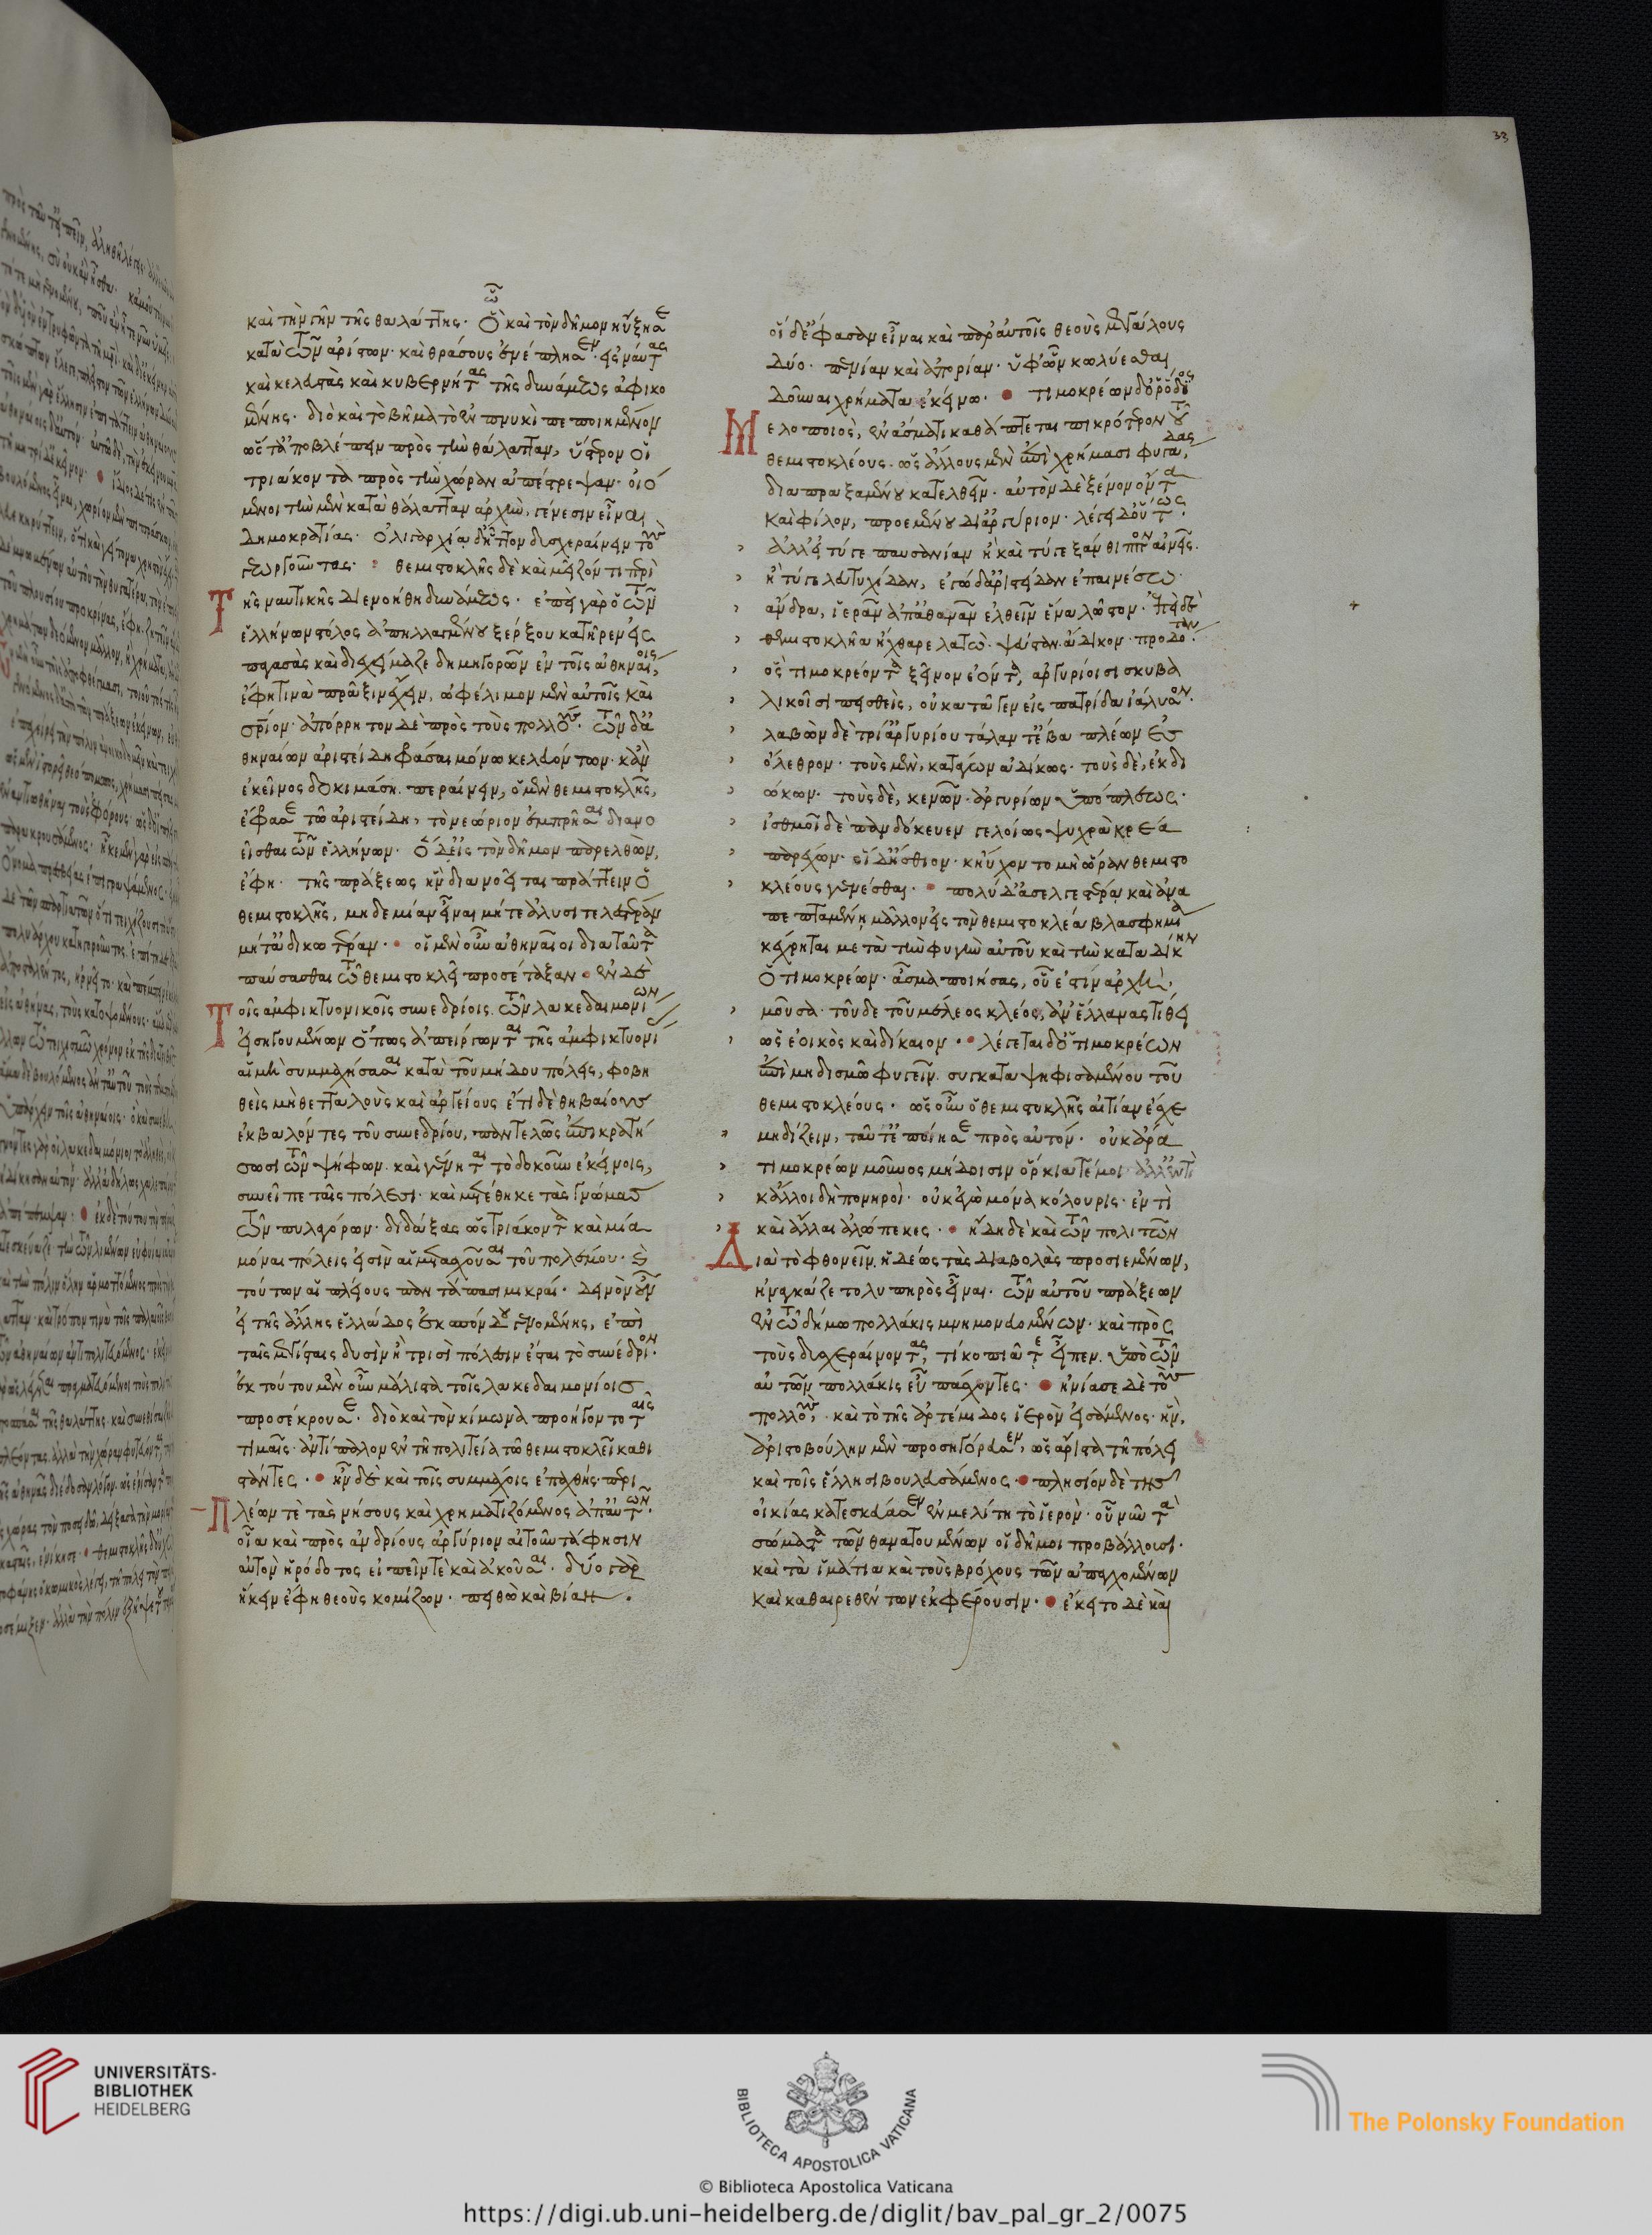 33
καὶ τὴν γῆν τῆς θαλάττης· ὅθεν καὶ τὸν δῆμον ηὔξησε
κατὰ τῶν ἀρίστων· καὶ θράσους ἐνέπλησεν· εἰς ναύτας
καὶ κελευστὰς καὶ κυβερνήτας τῆς δυνάμεως ἀφικο
μένης· διὸ καὶ τὸ βῆμα τὸ ἐν πνυκὶ πεποιημένον
ὥστ' ἀποβλέπειν πρὸς τὴν θάλατταν, ὕστερον οἱ
τριάκοντα πρὸς τὴν χώραν ἀπέστρεψαν· οἰό
μενοι τὴν μὲν κατὰ θάλατταν ἀρχὴν, γένεσιν εἶναι
δημοκρατίας· ὀλιγαρχίᾳ δ' ἧττον δυσχεραίνειν τοὺς
γεωργοῦντας· θεμιστοκλῆς δὲ καὶ μεῖζόν τι περὶ
Τῆς ναυτικῆς διενοήθη δυνάμεως· ἐπεὶ γὰρ ὁ τῶν
ἑλλήνων στόλος ἀπηλλαγμένου ξέρξου κατῆρεν εἰς
παγασὰς καὶ διεχείμαζε δημηγορῶν ἐν τοῖς ἀθηναίοις,
ἔφη τινὰ πρᾶξιν ἔχειν, ὠφέλιμον μὲν αὐτοῖς καὶ
σωτήριον· ἀπόρρητον δὲ πρὸς τοὺς πολλούς· τῶν δ' ἀ
θηναίων ἀριστείδη φράσαι μόνω κελευόντων· κἂν
ἐκεῖνος δοκιμάση περαίνειν, ὁ μὲν θεμιστοκλῆς,
ἔφρασε τῶ ἀριστείδη, τὸ νεώριον ἐμπρῆσαι διανο
εῖσθαι τῶν ἑλλήνων· ὁ δ' εἰς τὸν δῆμον παρελθὼν,
ἔφη· τῆς πράξεως ἣν διανοεῖται πράττειν ὁ
θεμιστοκλῆς, μηδεμίαν εἶναι μήτε λυσιτελεστέραν
μήτ' ἀδικωτέραν· οἱ μὲν οὖν ἀθηναῖοι διὰ ταῦτα
παύσασθαι τῶ θεμιστοκλεῖ προσέταξαν· ἐν δὲ
Τοῖς ἀμφικτυονικοῖς συνεδρίοις τῶν λακεδαιμονίων
εἰσηγουμένων ὅπως ἀπείργωνται τῆς ἀμφικτυονί
αἱ μὴ συμμαχήσασαι κατὰ τοῦ μήδου πόλεις, φοβη
θεὶς μὴ θετταλοὺς καὶ ἀργείους ἔτι δὲ θηβαίους
ἐκβαλόντες τοῦ συνεδρίου, παντελῶς ἐπικρατή
σωσι τῶν ψήφων· καὶ γένηται τὸ δοκοῦν ἐκείνοις,
συνεῖπε ταῖς πόλεσι· καὶ μετέθηκε τὰς γνώμας
τῶν πυλαγόρων· διδάξας ὡς τριάκοντα καὶ μία
μόναι πόλεις εἰσὶν αἱ μετασχοῦσαι τοῦ πολέμου· καὶ
τούτων αἱ πλείους παντάπασι μικραί· δεινὸν οὖν
εἰ τῆς ἄλλης ἑλλάδος ἐκσπόνδου γενομένης, ἐπὶ
ταῖς μεγίσταις δυσὶν ἢ τρισὶ πόλεσιν ἔσται τὸ συνέδριον·
ἐκ τούτου μὲν οὖν μάλιστα τοῖς λακεδαιμονίοις
προσέκρουσε· διὸ καὶ τὸν κίμωνα προῆγον το ταῖς
τιμαῖς· ἀντίπαλον ἐν τῆ πολιτεία τῶ θεμιστοκλεῖ καθι
στάντες· ἦν δὲ καὶ τοῖς συμμάχοις ἐπαχθὴς· περι
Πλέων τὲ τὰς νήσους καὶ χρηματιζόμενος ἀπ' αὐτῶν·
οἷα καὶ πρὸς ἀνδρίους ἀργύριον αἰτοῦντά φησιν
αὐτὸν ἡρόδοτος εἰπεῖν τὲ καὶ ἀκοῦσαι· δύο γὰρ
ἥκειν ἔφη θεοὺς κομίζων· πειθὼ καὶ βίαν.
οἱ δ' ἔφασαν εἶναι καὶ παρ' αὐτοῖς θεοὺς μεγάλους
δύο· πενίαν καὶ ἀπορίαν· ὑφ' ὧν κωλύεσθαι
δοῦναι χρήματα ἐκείνω· τιμοκρέων δ' ὁ ῥόδιος
Μελοποιὸς, ἐν ἄσματι καθάπτεται πικρότερον τοῦ
θεμιστοκλέους· ὡς ἄλλους μὲν ἐπὶ χρήμασι φυγάδας
διαπραξαμένου κατελθεῖν· αὐτὸν δὲ ξένον ὄντα
καὶ φίλον, προεμένου δι' ἀργύριον· λέγει δ' οὕτως·
ἀλλ' εἰ τύγε παυσανίαν ἢ καὶ τύγε ξάνθιππον αἰνεῖς·
ἢ τύγα λευτυχίδαν, ἐγὼ δ' ἀριστείδαν ἐπαινέσω·
ἄνδρα, ἱερᾶν ἀπ' ἀθανᾶν ἐλθεῖν ἕνα λῶστον· ἐπεὶ δὲ
θεμιστοκλῆα ἤχθαρε λατώ· ψεύσταν ἄδικον· προδόταν·
ὃς τιμοκρέοντα ξεῖνον ἐόντα, ἀργυρίοισι σκυβα
λικοῖσι πεισθεὶς, οὐ κατᾶγεν εἰς πατρίδα ἰάλυσον·
λαβὼν δὲ τρί' ἀργυρίου τάλαντ' ἔβα πλέων εἰς
ὄλεθρον· τοὺς μὲν, κατάγων ἀδίκως· τοὺς δὲ, ἐκδι
ώκων· τοὺς δὲ, κενῶν· ἀργυρίων ὑπόπλεως·
ἰσθμοῖ δὲ πανδόκευεν γελοίως ψυχρὰ κρέα
παρέχων· οἱ δ' ἤσθιον· κηὔχοντο μὴ ὥραν θεμιστο
κλέους γενέσθαι· πολὺ δ' ἀσελγεστέρα καὶ ἀνα
πεπταμένη μᾶλλον εἰς τὸν θεμιστοκλέα βλασφημία
κέχρηται μετὰ τὴν φυγὴν αὐτοῦ καὶ τὴν καταδίκην
ὁ τιμοκρέων· ἆσμα ποιήσας, οὗ ἐστὶν ἀρχή·
μοῦσα τοῦδε τοῦ μέλεος κλέος ἀν' ἕλλανας τίθει
ὡς ἐοικὸς καὶ δίκαιον· λέγεται δ' ὁ τιμοκρέων
ἐπὶ μηδισμῶ φυγεῖν συγκαταψηφισαμένου τοῦ
θεμιστοκλέους· ὡς οὖν ὁ θεμιστοκλῆς αἰτίαν ἔσχε
μηδίζειν, ταῦτ' ἐποίησε πρὸς αὐτόν· οὐκ ἄρα
τιμοκρέων μοῦνος μήδοισιν ὁρκιατέμοι ἀλλ' ἐντὶ
κἄλλοι δὴ πονηροί· οὐκ ἐγὼ μόνα κόλουρις· ἐντὶ
καὶ ἄλλαι ἀλώπεκες· ἤδη δὲ καὶ τῶν πολιτῶν
Διὰ τὸ φθονεῖν ἡδέως τὰς διαβολὰς προσιεμένων,
ἠναγκάζετο λυπηρὸς εἶναι· τῶν αὐτοῦ πράξεων
ἐν τῶ δήμω πολλάκις μνημονευομένων· καὶ πρὸς
τοὺς δυσχεραίνοντας, τί κοπιᾶτε εἶπεν ὑπὸ τῶν
αὐτῶν πολλάκις εὖ πάσχοντες· ἠνίασε δὲ τοὺς
πολλοὺς, καὶ τὸ τῆς ἀρτέμιδος ἱερὸν εἱσάμενος· ἣν,
ἀριστοβούλην μὲν προσηγόρευσεν, ὡς ἄριστα τῆ πόλει
καὶ τοῖς ἕλλησι βουλευσάμενος· πλησίον δὲ τῆς
οἰκίας κατεσκεύασεν ἐν μελίτη τὸ ἱερὸν· οὗ νῦν τὰ
σώματα τῶν θανατουμένων οἱ δήμιοι προβάλλουσι·
καὶ τὰ ἱμάτια καὶ τοὺς βρόχους τῶν ἀπαγχομένων
καὶ καθαιρεθέντων ἐκφέρουσιν· ἔκειτο δὲ καὶ
UNIVERSITÄTS-
BIBLIOTHEK
HEIDELBERG
BIBLIOTECA APOSTOLICA VATICANA
© Biblioteca Apostolica Vaticana
The Polonsky Foundation
https://digi.ub.uni-heidelberg.de/diglit/bav_pal_gr_2/0075